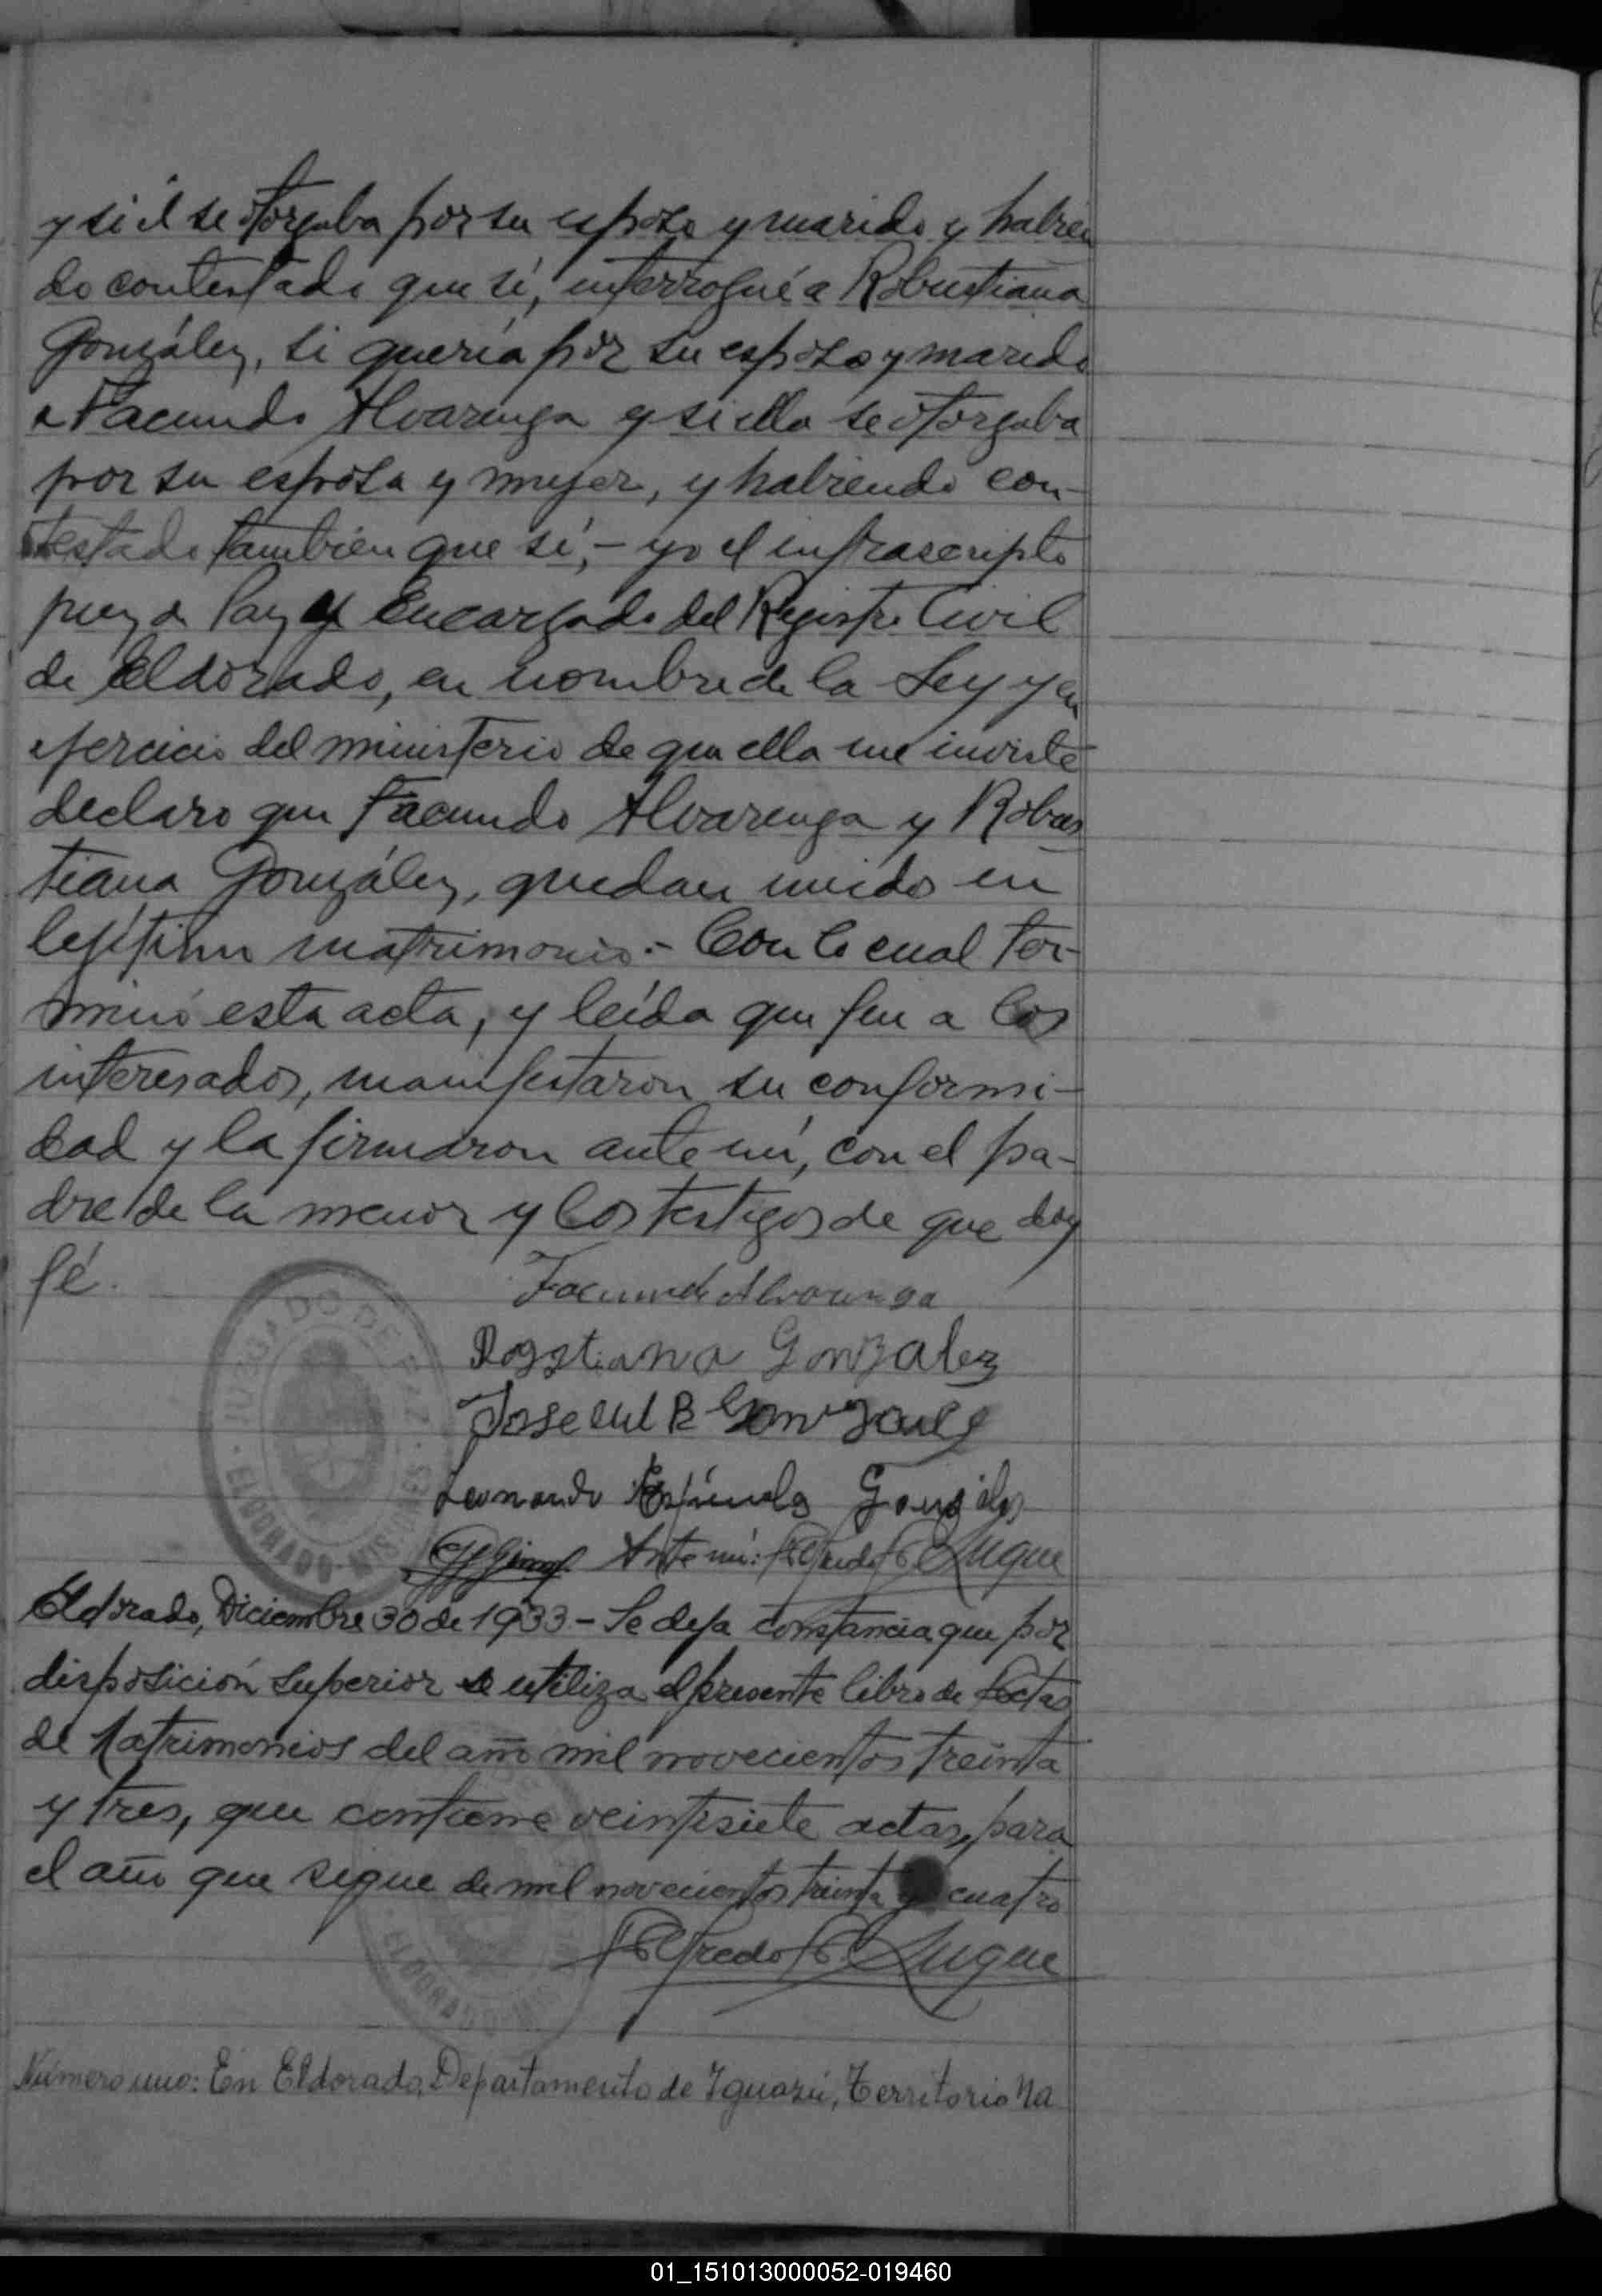 y si él se otorgaba por su esposo y marido y habien
do contestado que sí, interrogué a Robustiana
González, si quería por su esposo y marido
a Facundo Alvarenga y si ella se otorgaba
por su esposa y mujer, y habiendo con-
testado también que sí,- yo el infrascripto
Juez de Paz y Encargado del Registro Civil
de Eldorado, en nombre de la Ley y en
ejercicio del ministerio de que ella me inviste
declaro que Facundo Alvarenga y Robus
tiana González, quedan unidos en
legítimo matrimonio.- Con lo cual ter-
minó esta acta, y leída que fue a los
interesados, manifestaron su conformi-
dad y la firmaron ante mí, con el pa-
dre de la menor y los testigos de que doy
fé.
Facundo Alvarenga
Rogstiana Gonzalez
Jose del R
Leonardo Espínola González
Ante mí: Alfredo Luque
JUZGADO DE PAZ
ELDORADO-MISIONES
Eldorado, Diciembre 30 de 1933 - Se deja constancia que por
disposición superior se utiliza el presente libro de Actas
de Matrimonios del año mil novecientos treinta
y tres, que contiene veintisiete actas, para
el año que sigue de mil novecientos treinta y cuatro
Alfredo Luque
ELDORADO-MIS
Número uno: En Eldorado, Departamento de Iguazú, Territorio Na
01_151013000052-019460